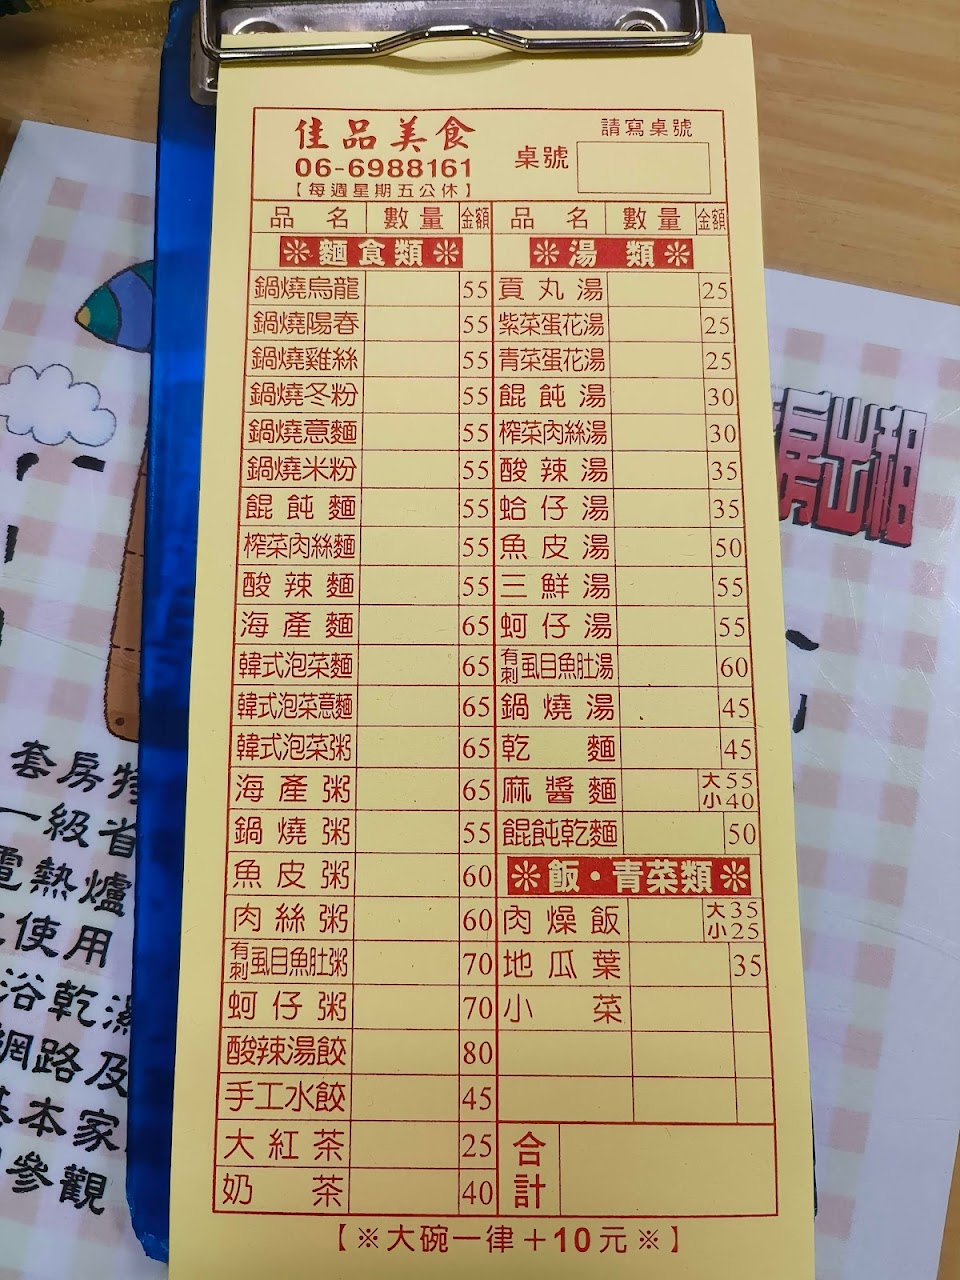 佳品美食
06-6988161
【每週星期五公休】
請寫桌號
桌號
品名 數量 金額
※麵食類※
鍋燒烏龍 55
鍋燒陽春 55
鍋燒雞絲 55
鍋燒冬粉 55
鍋燒意麵 55
鍋燒米粉 55
餛飩麵 55
榨菜肉絲麵 55
酸辣麵 55
海產麵 65
韓式泡菜麵 65
韓式泡菜意麵 65
韓式泡菜粥 65
海產粥 65
鍋燒粥 55
魚皮粥 60
肉絲粥 60
有刺虱目魚肚粥 70
蚵仔粥 70
酸辣湯餃 80
手工水餃 45
大紅茶 25
奶茶 40
品名 數量 金額
※湯類※
貢丸湯 25
紫菜蛋花湯 25
青菜蛋花湯 25
餛飩湯 30
榨菜肉絲湯 30
酸辣湯 35
蛤仔湯 35
魚皮湯 50
三鮮湯 55
蚵仔湯 55
有刺虱目魚肚湯 60
鍋燒湯 45
乾麵 45
麻醬麵 大55 小40
餛飩乾麵 50
※飯・青菜類※
肉燥飯 大35 小25
地瓜葉 35
小菜
合計
【※大碗一律+10元※】
房出租
套房特
一級省
電熱爐
使用
浴乾濕
網路及
基本家
參觀